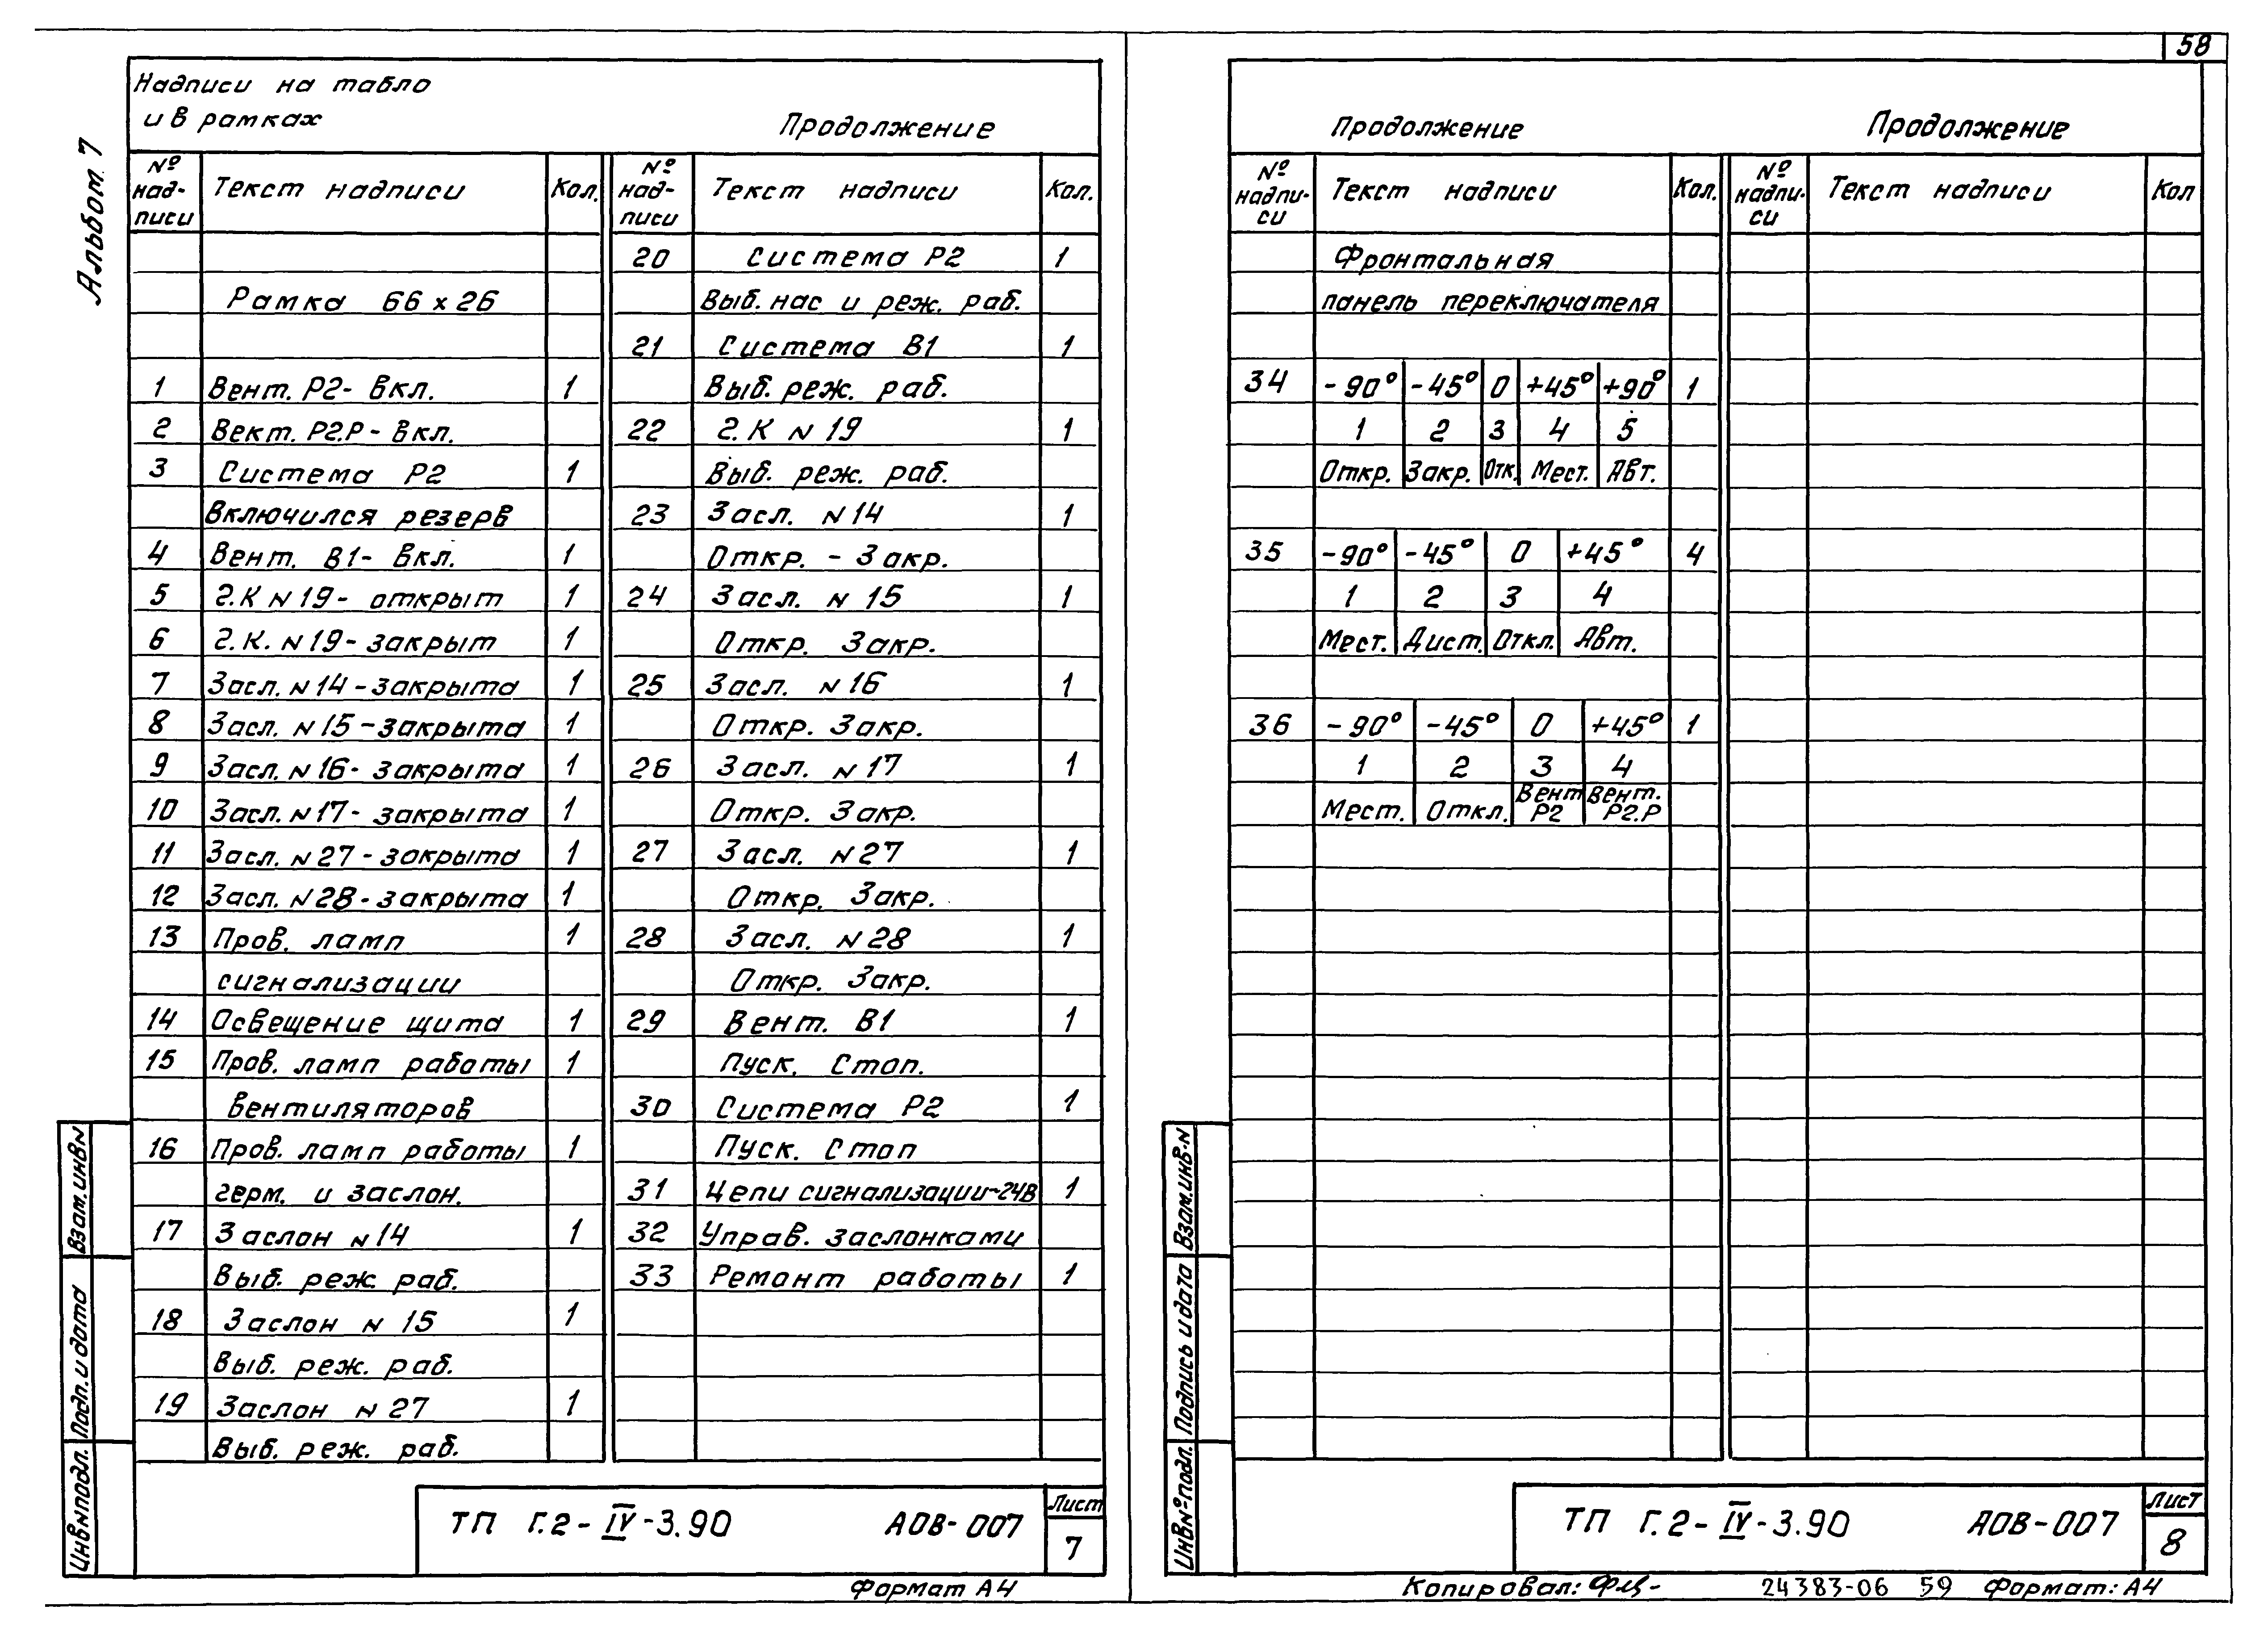 58
Альбом 7
Надписи на табло
и в рамках
Продолжение
№ над-писи Текст надписи Кол.
Рамка 66 х 26
1 Вент. Р2- вкл. 1
2 Вект. Р2.Р- вкл.
3 Система Р2 1
включился резерв
4 Вент. В1- вкл. 1
5 г.К N 19- открыт 1
6 г.К. N 19- закрыт 1
7 Засл. N 14 - закрыта 1
8 Засл. N 15 - закрыта 1
9 Засл. N 16 - закрыта 1
10 Засл. N 17 - закрыта 1
11 Засл. N 27 - закрыта 1
12 Засл. N 28 - закрыта 1
13 Пров. ламп 1
сигнализации
14 Освещение щита 1
15 Пров. ламп работы 1
вентиляторов
16 Пров. ламп работы 1
герм. и заслон.
17 Заслон N 14 1
Выб. реж. раб.
18 Заслон N 15 1
Выб. реж. раб.
19 Заслон N 27 1
Выб. реж. раб.
№ над-писи Текст надписи Кол.
20 Система Р2 1
Выб. нас и реж. раб.
21 Система В1 1
Выб. реж. раб.
22 г.К N 19 1
Выб. реж. раб.
23 Засл. N 14 1
Откр. - Закр.
24 Засл. N 15 1
Откр. Закр.
25 Засл. N 16 1
Откр. Закр.
26 Засл. N 17 1
Откр. Закр.
27 Засл. N 27 1
Откр. Закр.
28 Засл. N 28 1
Откр. Закр.
29 Вент. В1 1
Пуск. Стоп.
30 Система Р2 1
Пуск. Стоп
31 Цепи сигнализации~24В 1
32 Управ. заслонками
33 Ремонт работы 1
Взам. инв N
Подп. и дата
Инв N подл.
ТП Г.2-IV-3.90 АОВ-007
Лист
7
Формат А4
Продолжение Продолжение
№ надпи-си Текст надписи Кол. № надпи-си Текст надписи Кол
Фронтальная
панель переключателя
34 -90° -45° 0 +45° +90° 1
1 2 3 4 5
Откр. Закр. Отк. Мест. Авт.
35 -90° -45° 0 +45° 4
1 2 3 4
Мест. Дист. Откл. Авт.
36 -90° -45° 0 +45° 1
1 2 3 4
Мест. Откл. Вент Р2 Вент. Р2.Р
Взам. инв. N
Подпись и дата
Инв № подл.
ТП Г.2-IV-3.90 АОВ-007
Лист
8
Копировал: 24383-06 59 Формат: А4